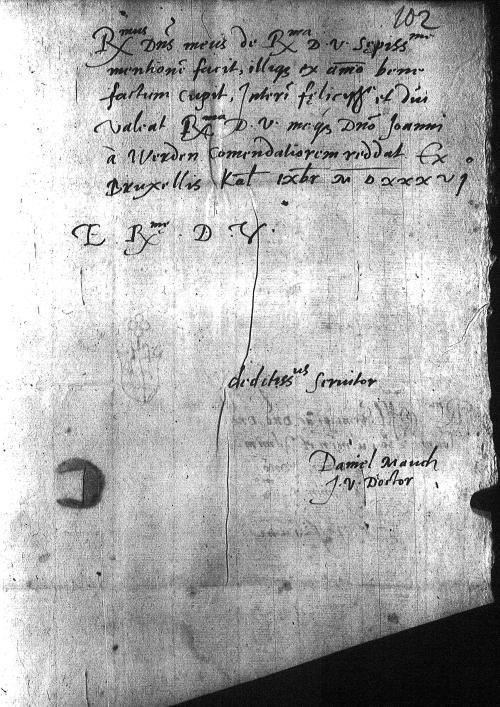 102
R^mus Dns meus de R^ma D. V. sepiss^me
mentionem facit, illiqz ex aīmo bene
factum cupit, Interi felicissᵉ et diu
valeat R^ma D. V. meqz Dno Joanni
à Werden Comendatiorem reddat Ex
Bruxellis Kal ixbr M D xxx vj
E R^me . D . V .
deditiss^us servitor
Daniel Mauch
J. V. Doctor